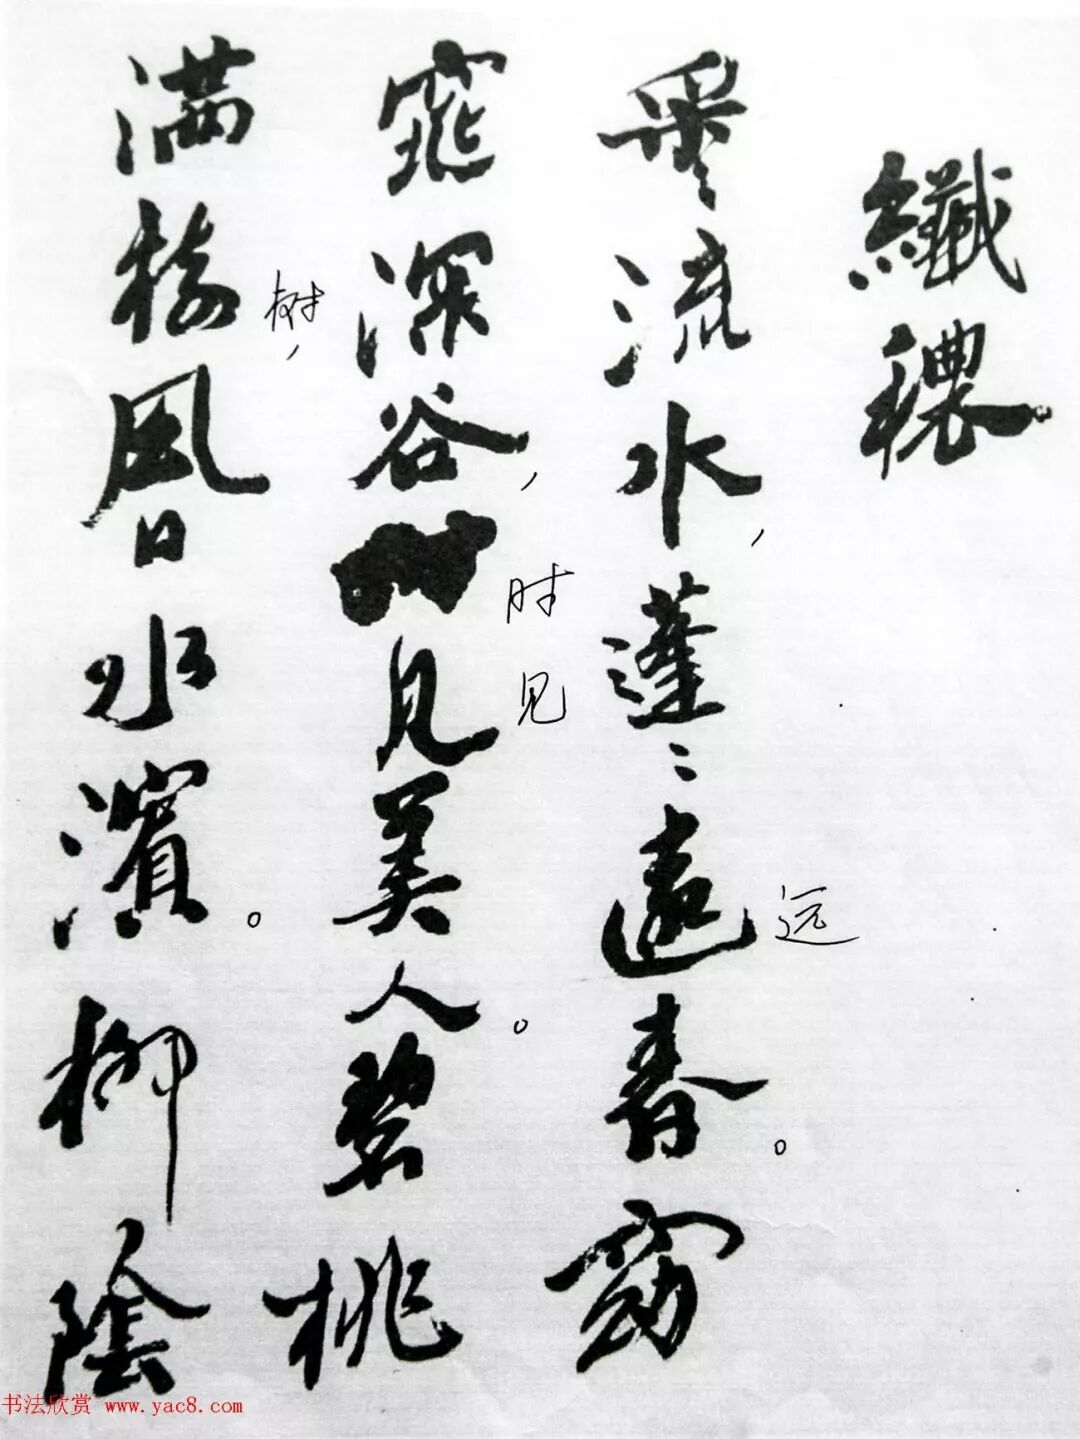 纖穠
采〻流水，蓬〻遠春。窈
远
窕深谷，見美人。碧桃
时见
满樹風日水濱。柳陰
树，
书法欣赏 www.yac8.com